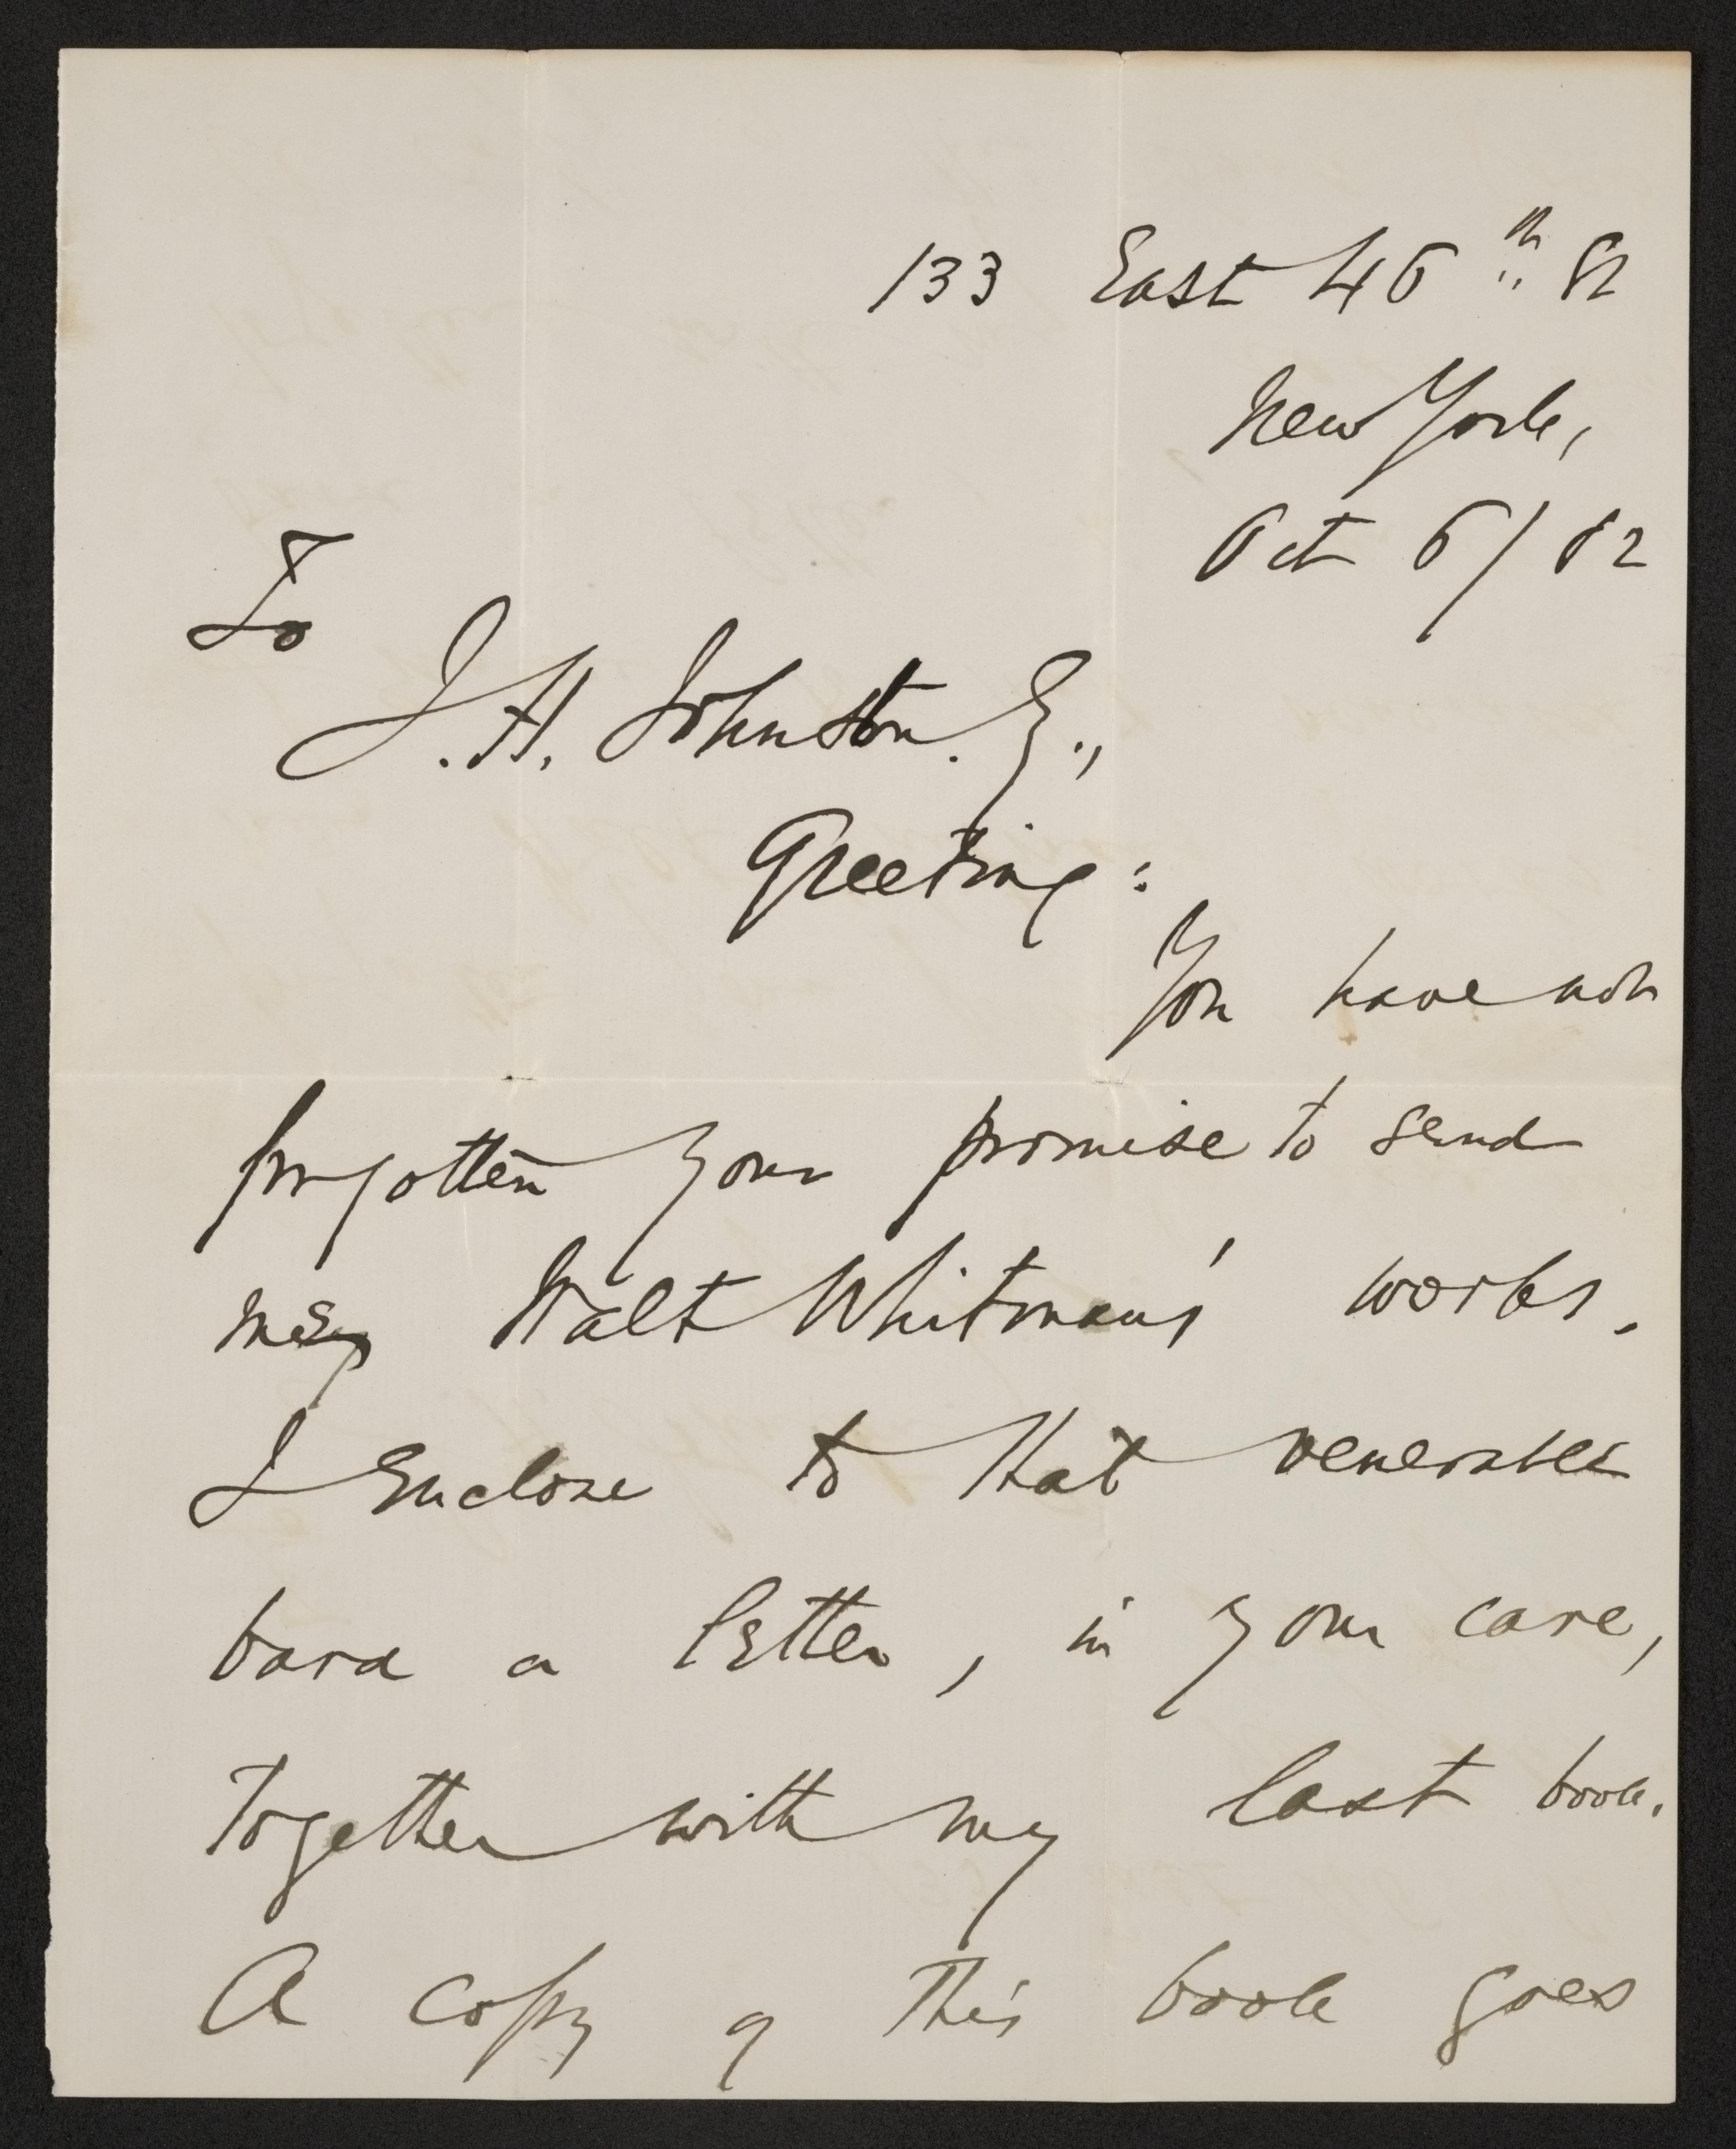 133 East 45th St
New York,
Oct 5/82
To
J. H. Johnston. E.,
Greeting:
You have not
forgotten your promise to send
me Walt Whitman's works.
I enclose to that venerable
bard a letter, in your care,
together with my last book.
A copy of this book goes